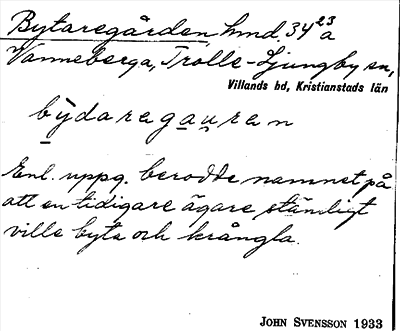 Bytaregården, hmd. 34²³a
Vanneberga, Trolle-Ljungby sn,
Villands hd, Kristianstads län
bỳdaregau̯ren
Enl. uppg. berodde namnet på
att en tidigare ägare ständigt
ville byta och krångla.
JOHN SVENSSON 1933